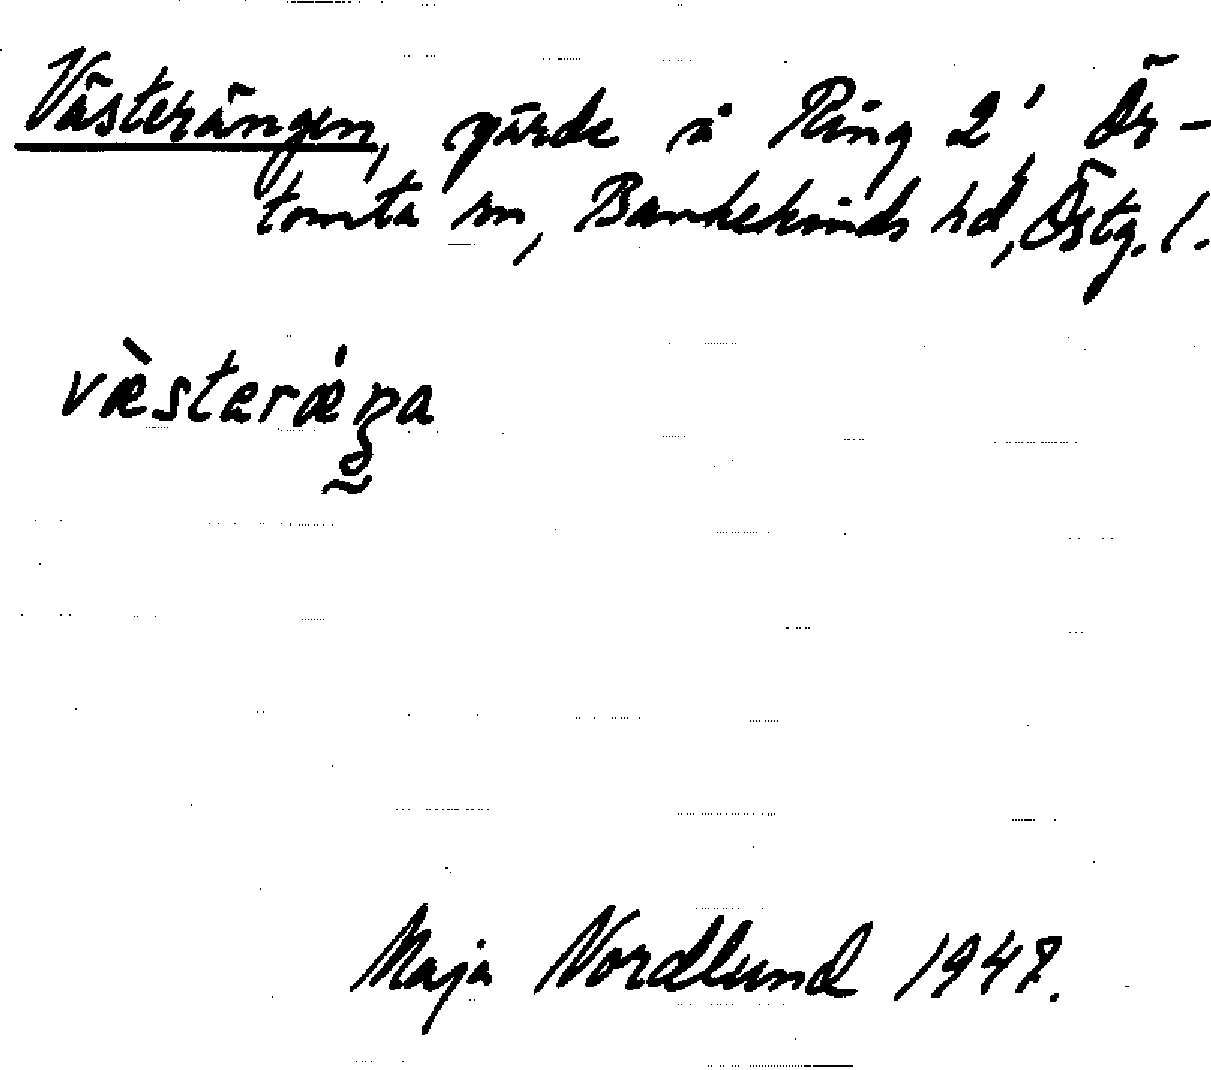 Västerängen, gärde i Ring 2', Ör-
tomta sn, Bankekinds hd, Östg. l.
væ̀steræ̇ŋa
Maja Nordlund 1947.